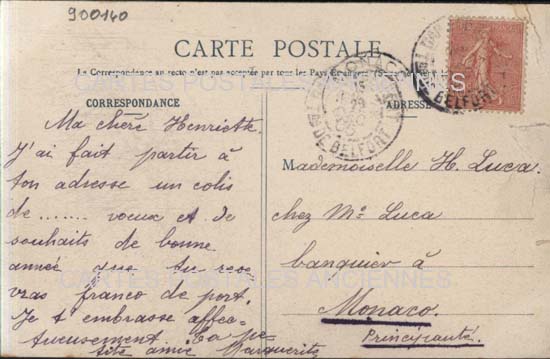 900140
CARTE POSTALE
La Correspondance au recto n'est pas acceptée par tous les Pays Étrangers
CORRESPONDANCE
ADRESSE
DE BELFORT
BELFORT
CARTES POSTALES ANCIENNES
Ma chère Henriette
J'ai fait partir à
ton adresse un colis
de ........ voeux et de
souhaits de bonne
année que tu rece
vras franco de port.
Je t'embrasse affec-
tueusement. Ta pe-
tite amie Marguerite
Mademoiselle H. Luca.
chez Mr Luca
banquier à
Monaco.
Principauté.
CARTES POSTALES ANCIENNES